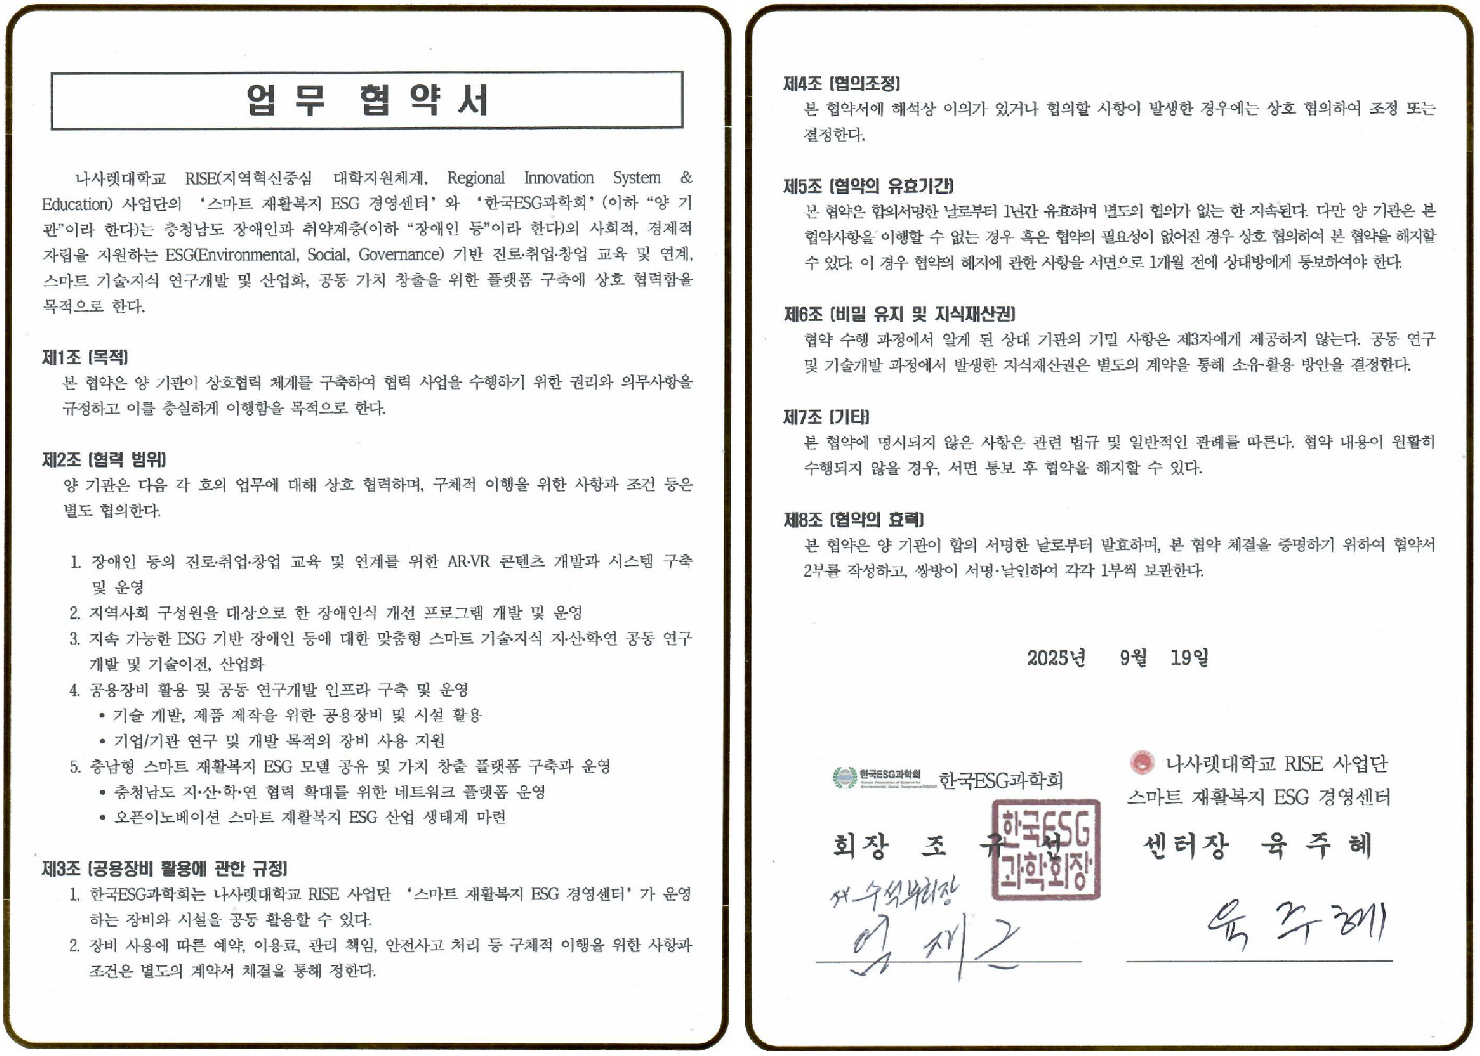 업 무 협 약 서
나사렛대학교 RISE(지역혁신중심 대학지원체계, Regional Innovation System &
Education) 사업단의 ‘스마트 재활복지 ESG 경영센터’와 ‘한국ESG과학회’(이하 “양 기
관”이라 한다)는 충청남도 장애인과 취약계층(이하 “장애인 등”이라 한다)의 사회적, 경제적
자립을 지원하는 ESG(Environmental, Social, Governance) 기반 진로·취업·창업 교육 및 연계,
스마트 기술·지식 연구개발 및 산업화, 공동 가치 창출을 위한 플랫폼 구축에 상호 협력함을
목적으로 한다.
제1조 (목적)
본 협약은 양 기관이 상호협력 체계를 구축하여 협력 사업을 수행하기 위한 권리와 의무사항을
규정하고 이를 충실하게 이행함을 목적으로 한다.
제2조 (협력 범위)
양 기관은 다음 각 호의 업무에 대해 상호 협력하며, 구체적 이행을 위한 사항과 조건 등은
별도 협의한다.
1. 장애인 등의 진로·취업·창업 교육 및 연계를 위한 AR·VR 콘텐츠 개발과 시스템 구축
및 운영
2. 지역사회 구성원을 대상으로 한 장애인식 개선 프로그램 개발 및 운영
3. 지속 가능한 ESG 기반 장애인 등에 대한 맞춤형 스마트 기술·지식 지·산·학·연 공동 연구
개발 및 기술이전, 산업화
4. 공용장비 활용 및 공동 연구개발 인프라 구축 및 운영
• 기술 개발, 제품 제작을 위한 공용장비 및 시설 활용
• 기업/기관 연구 및 개발 목적의 장비 사용 지원
5. 충남형 스마트 재활복지 ESG 모델 공유 및 가치 창출 플랫폼 구축과 운영
• 충청남도 지·산·학·연 협력 확대를 위한 네트워크 플랫폼 운영
• 오픈이노베이션 스마트 재활복지 ESG 산업 생태계 마련
제3조 (공용장비 활용에 관한 규정)
1. 한국ESG과학회는 나사렛대학교 RISE 사업단 ‘스마트 재활복지 ESG 경영센터’가 운영
하는 장비와 시설을 공동 활용할 수 있다.
2. 장비 사용에 따른 예약, 이용료, 관리 책임, 안전사고 처리 등 구체적 이행을 위한 사항과
조건은 별도의 계약서 체결을 통해 정한다.
제4조 (협의조정)
본 협약서에 해석상 이의가 있거나 협의할 사항이 발생한 경우에는 상호 협의하여 조정 또는
결정한다.
제5조 (협약의 유효기간)
본 협약은 합의서명한 날로부터 1년간 유효하며 별도의 협의가 없는 한 지속된다. 다만 양 기관은 본
협약사항을 이행할 수 없는 경우 혹은 협약의 필요성이 없어진 경우 상호 협의하여 본 협약을 해지할
수 있다. 이 경우 협약의 해지에 관한 사항을 서면으로 1개월 전에 상대방에게 통보하여야 한다.
제6조 (비밀 유지 및 지식재산권)
협약 수행 과정에서 알게 된 상대 기관의 기밀 사항은 제3자에게 제공하지 않는다. 공동 연구
및 기술개발 과정에서 발생한 지식재산권은 별도의 계약을 통해 소유·활용 방안을 결정한다.
제7조 (기타)
본 협약에 명시되지 않은 사항은 관련 법규 및 일반적인 관례를 따른다. 협약 내용이 원활히
수행되지 않을 경우, 서면 통보 후 협약을 해지할 수 있다.
제8조 (협약의 효력)
본 협약은 양 기관이 합의 서명한 날로부터 발효하며, 본 협약 체결을 증명하기 위하여 협약서
2부를 작성하고, 쌍방이 서명·날인하여 각각 1부씩 보관한다.
2025년 9월 19일
한국ESG과학회 한국ESG과학회
회장 조 규 선
한국ESG
과학회장
수석부회장
엄 재 근
나사렛대학교 RISE 사업단
스마트 재활복지 ESG 경영센터
센터장 육 주 혜
육 주 혜